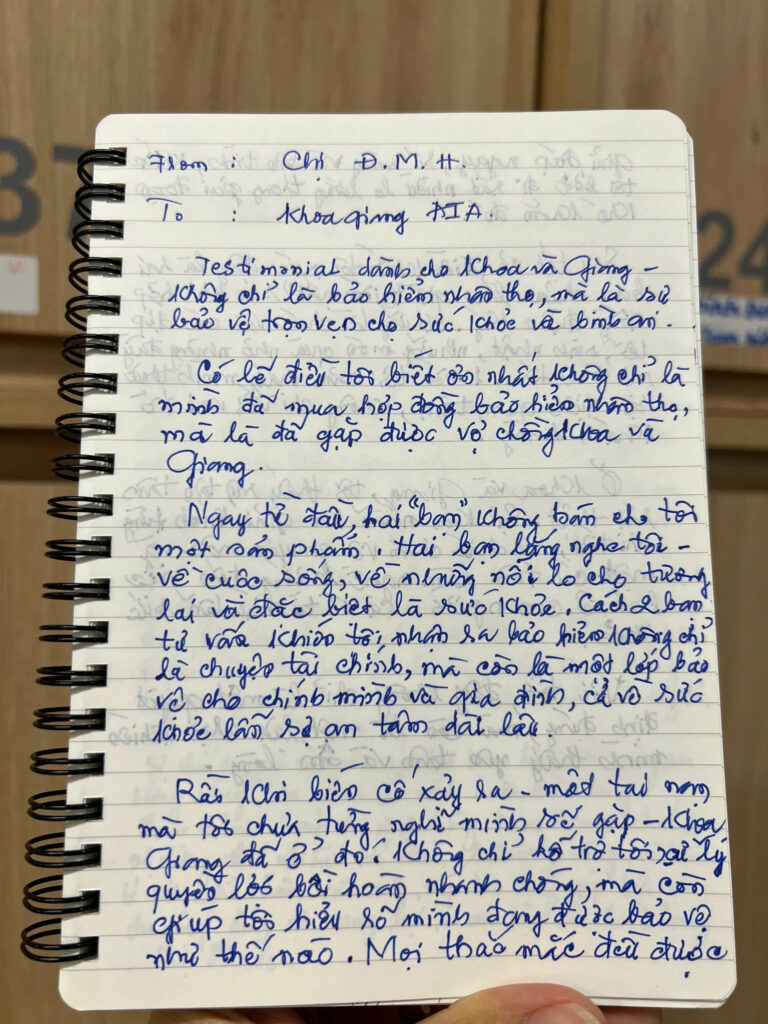 From : Chị Đ.M.H.
To : Khoa Giang AIA.
Testimonial dành cho Khoa và Giang –
Không chỉ là bảo hiểm nhân thọ, mà là sự
bảo vệ trọn vẹn cho sức khỏe và bình an.
Có lẽ điều tôi biết ơn nhất không chỉ là
mình đã mua hợp đồng bảo hiểm nhân thọ,
mà là đã gặp được vợ chồng Khoa và
Giang.
Ngay từ đầu, hai "bạn" không bán cho tôi
một sản phẩm. Hai bạn lắng nghe tôi –
về cuộc sống, về những nỗi lo cho tương
lai và đặc biệt là sức khỏe. Cách 2 bạn
tư vấn khiến tôi nhận ra bảo hiểm không chỉ
là chuyện tài chính, mà còn là một lớp bảo
vệ cho chính mình và gia đình, cả về sức
khỏe lẫn sự an tâm dài lâu.
Rồi khi biến cố xảy ra – một tai nạn
mà tôi chưa từng nghĩ mình sẽ gặp – Khoa
Giang đã ở đó. Không chỉ hỗ trợ tôi xử lý
quyền lợi bồi hoàn nhanh chóng, mà còn
giúp tôi hiểu rõ mình đang được bảo vệ
như thế nào. Mọi thắc mắc đều được
37
24